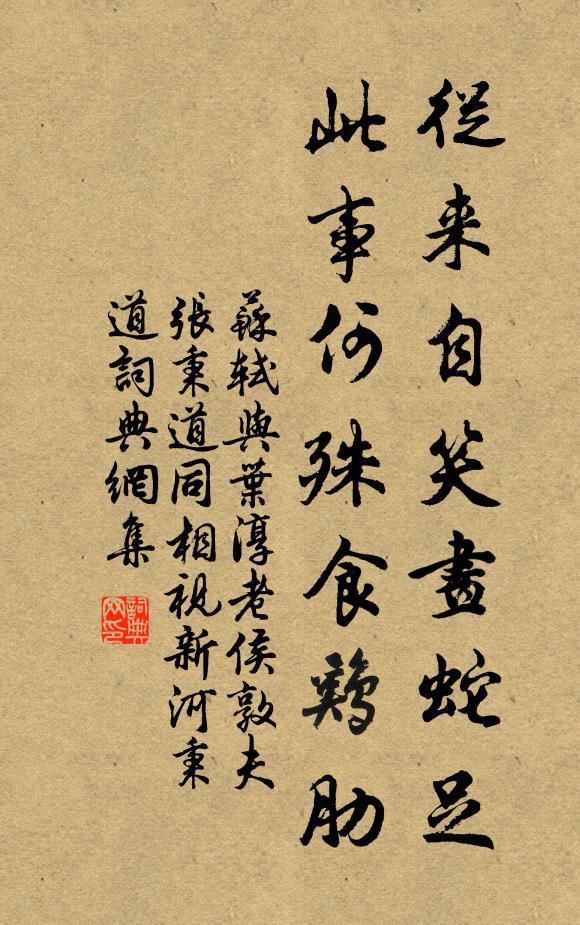 從来自笑畫蛇足
此事何殊食鷄肋
蘇軾與葉淳老侯敦夫
張秉道同相視新河秉
道詞典網集
詞典网印